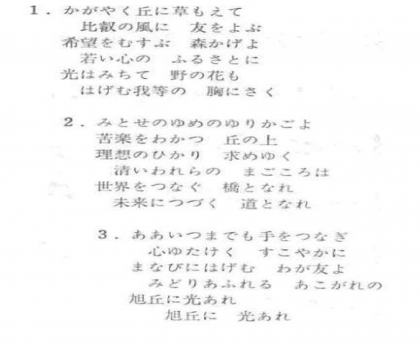 1．かがやく丘に草もえて
比叡の風に　友をよぶ
希望をむすぶ　森かげよ
若い心の　ふるさとに
光はみちて　野の花も
はげむ我等の　胸にさく
2．みとせのゆめのゆりかごよ
苦楽をわかつ　丘の上
理想のひかり　求めゆく
清いわれらの　まごころは
世界をつなぐ　橋となれ
未来につづく　道となれ
3．ああいつまでも手をつなぎ
心ゆたけく　すこやかに
まなびにはげむ　わが友よ
みどりあふれる　あこがれの
旭丘に光あれ
旭丘に　光あれ